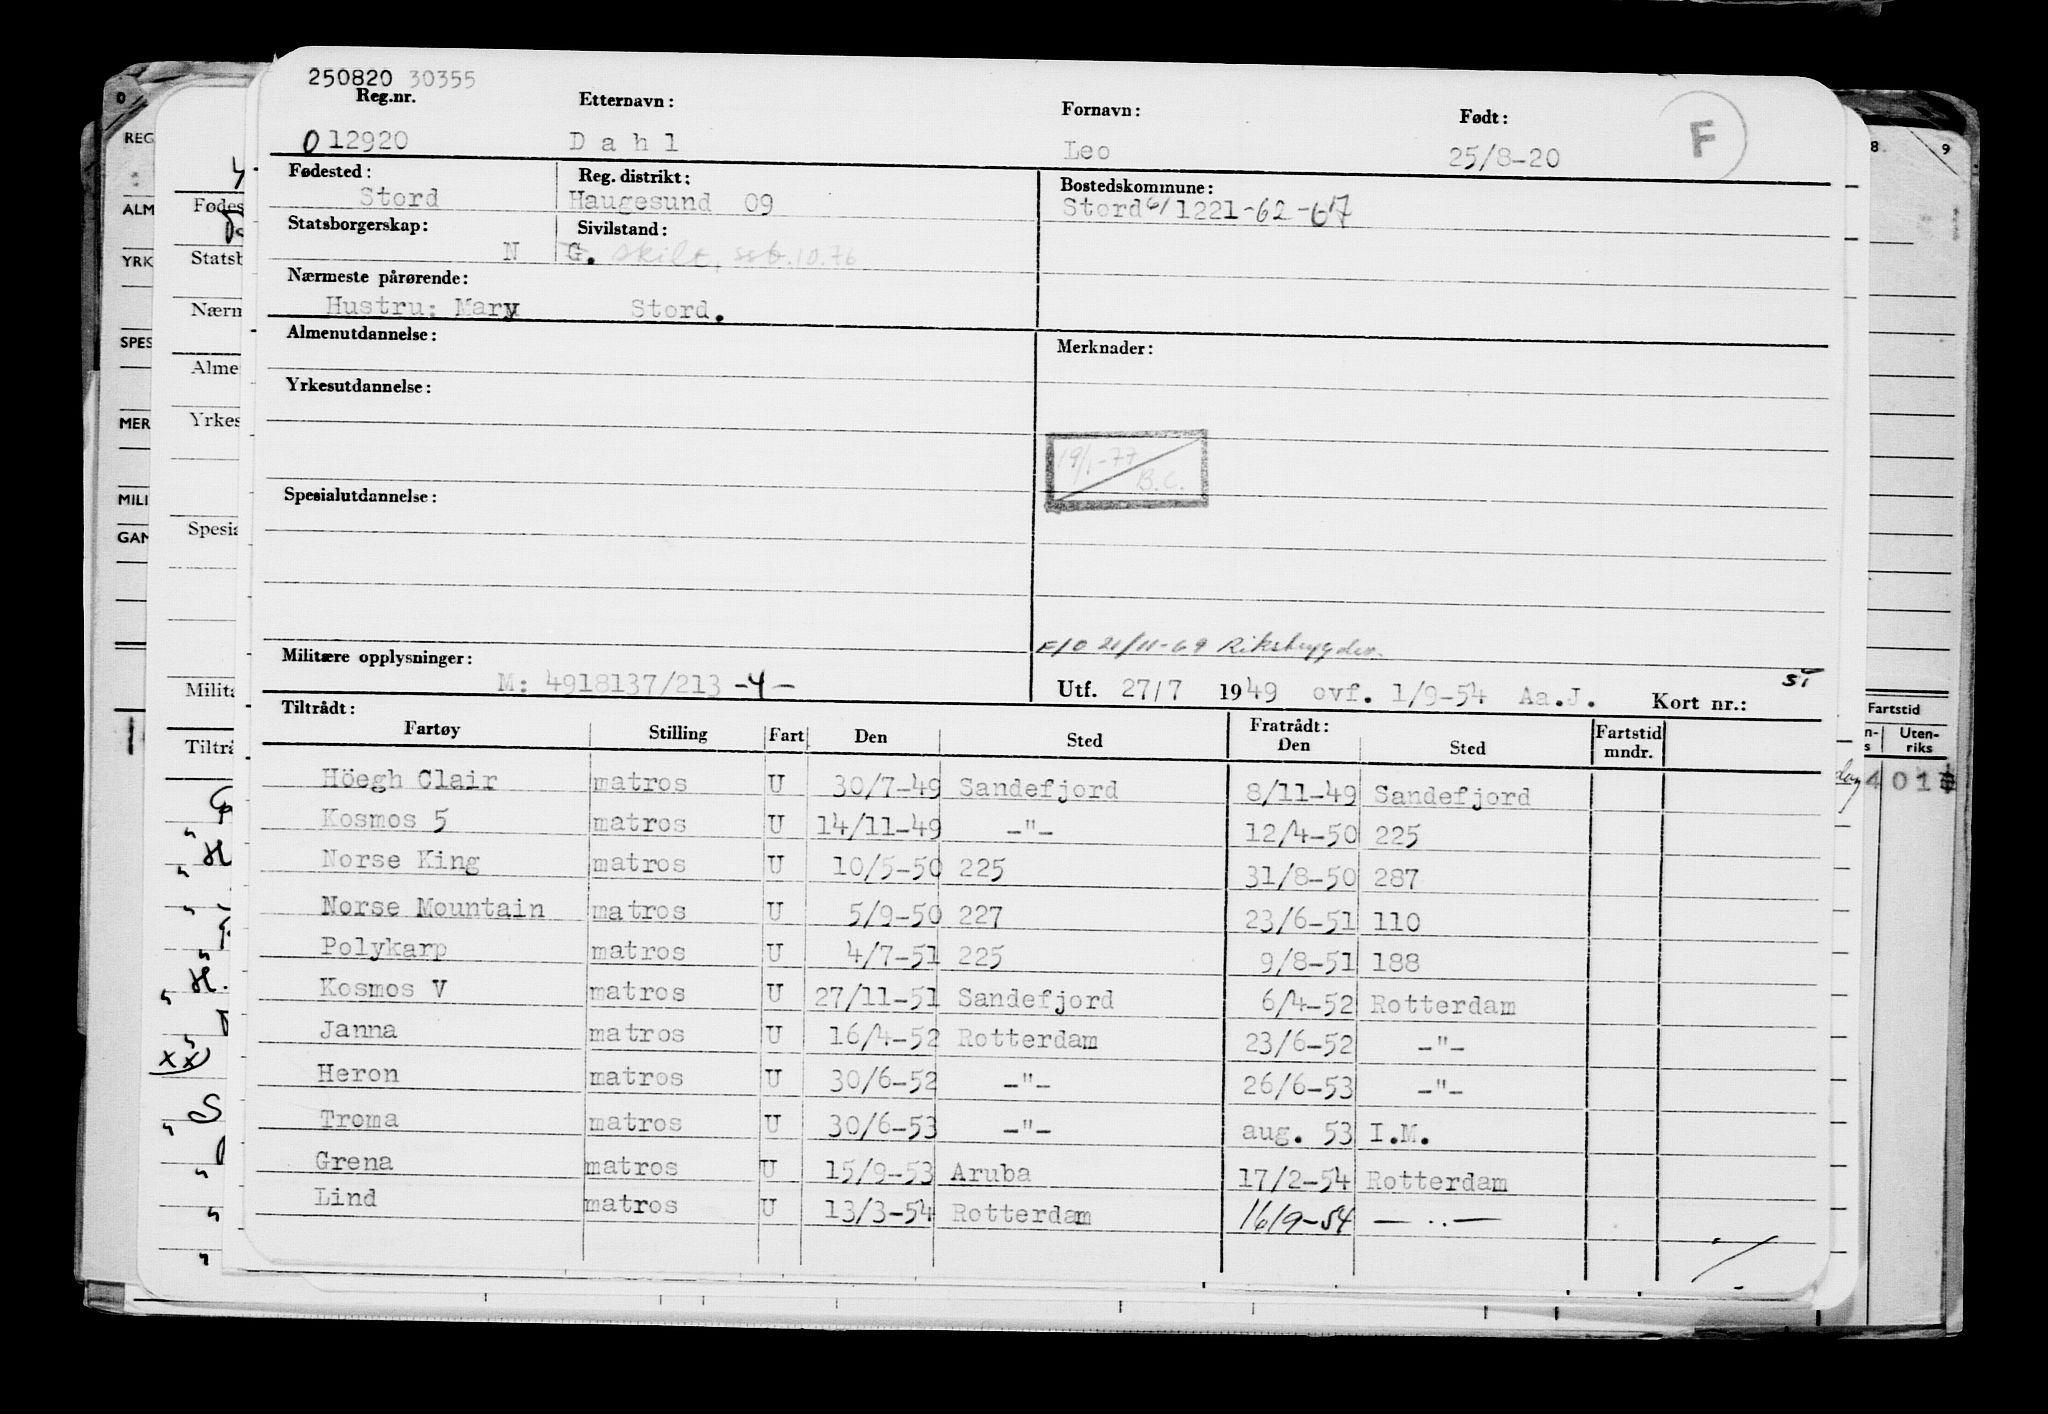 250820 30355
Reg.nr. Etternavn: Fornavn: Født: F
012920 Dahl Leo 25/8-20
Fødested: Reg. distrikt: Bostedskommune:
Stord Haugesund 09 Stord 61/1221-62-67
Statsborgerskap: Sivilstand:
N G. skilt, ssb.10.76
Nærmeste pårørende:
Hustru: Mary Stord.
Almenutdannelse: Merknader:
Yrkesutdannelse:
19/1-77 B.C.
Spesialutdannelse:
F/O 21/11-69 Riksbygder.
Militære opplysninger:
M: 4918137/213 -4- Utf. 27/7 1949 ovf. 1/9-54 Aa.J. Kort nr.:
Tiltrådt: Fratrådt:
Fartøy Stilling Fart Den Sted Den Sted Fartstid mndr.
Höegh Clair matros U 30/7-49 Sandefjord 8/11-49 Sandefjord
Kosmos 5 matros U 14/11-49 -"- 12/4-50 225
Norse King matros U 10/5-50 225 31/8-50 287
Norse Mountain matros U 5/9-50 227 23/6-51 110
Polykarp matros U 4/7-51 225 9/8-51 188
Kosmos V matros U 27/11-51 Sandefjord 6/4-52 Rotterdam
Janna matros U 16/4-52 Rotterdam 23/6-52 -"-
Heron matros U 30/6-52 -"- 26/6-53 -"-
Troma matros U 30/6-53 -"- aug. 53 I.M.
Grena matros U 15/9-53 Aruba 17/2-54 Rotterdam
Lind matros U 13/3-54 Rotterdam 16/9-54 -..-
0
REG
ALM
YRK
SPES
MER
MILI
GAN
Fødes
Statsb
Nærm
Alme
Yrkes
Spesia
Milita
Tiltrå
xx)
8 9
Fartstid
Uten-
riks